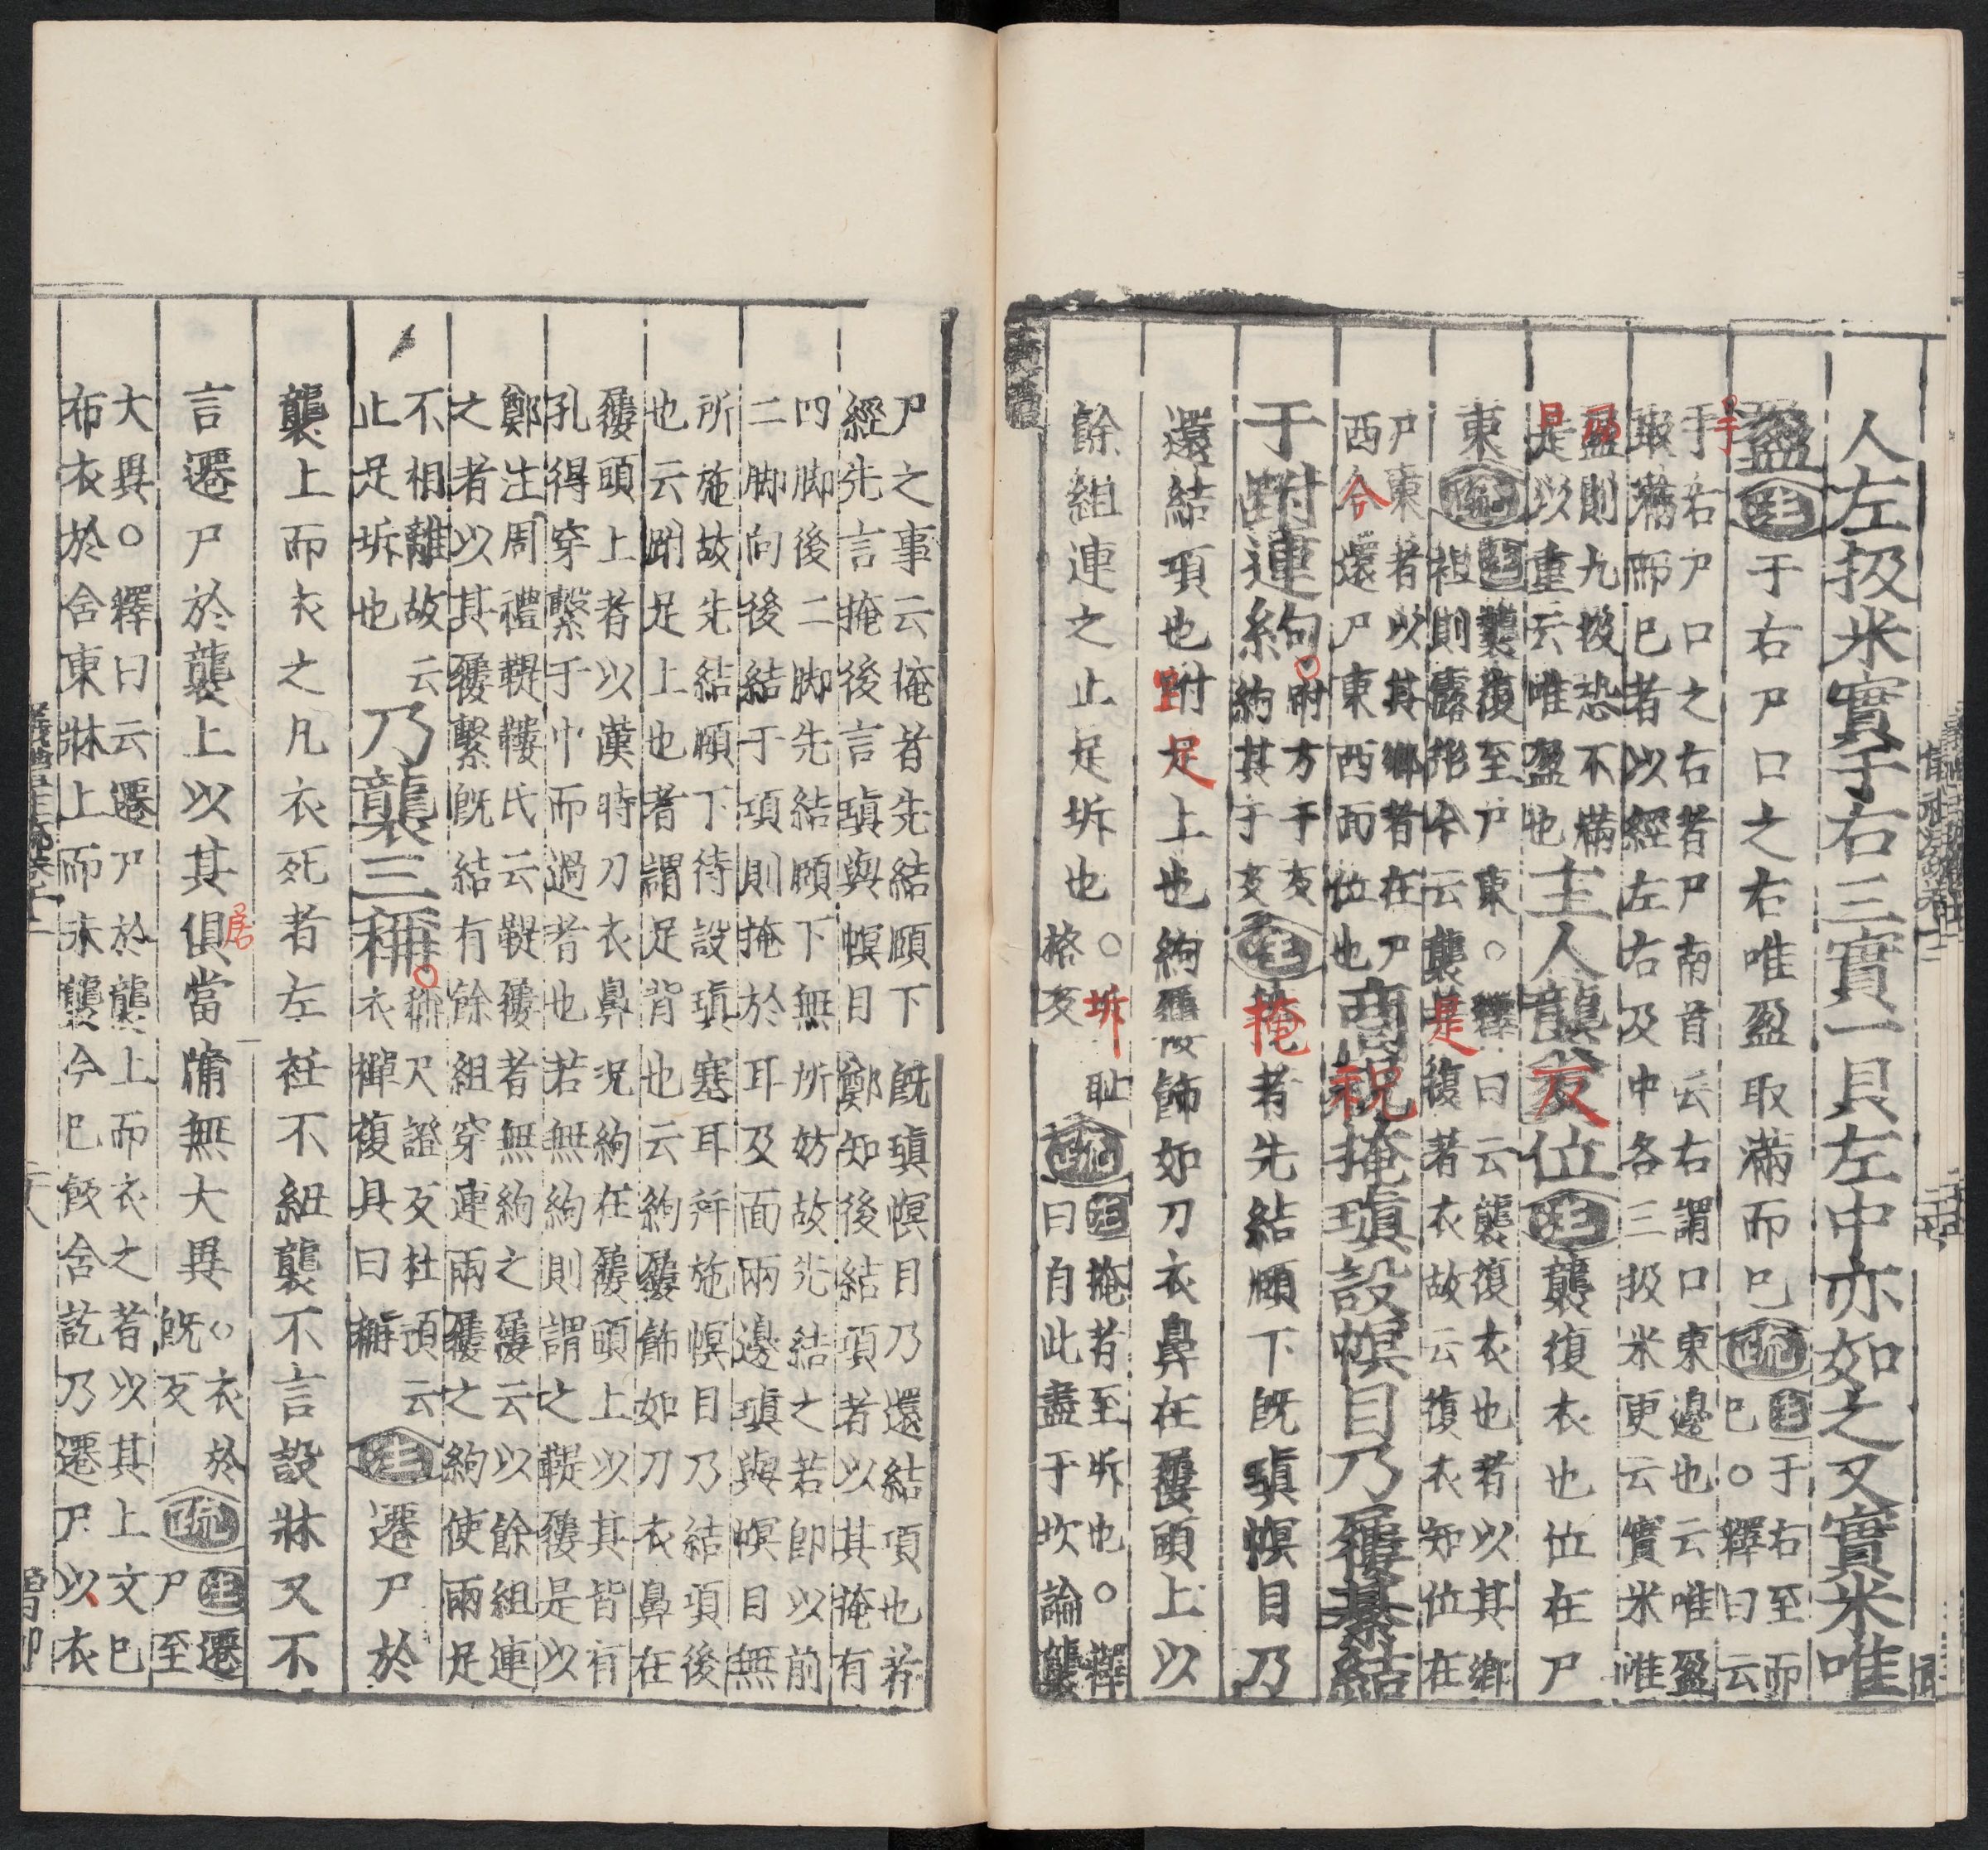 人左扱米實于右三實一貝左中亦如之又實米唯
盈注于右尸口之右唯盈取滿而已疏注于右至而
已○釋曰云
于右尸口之右者尸南首云右謂口東邊也云唯盈
取滿而已者以經左右及中各三扱米更云實米唯
盈則九扱恐不滿
是以重云唯盈也
主人襲反位注襲復衣也位在尸
東疏注襲復至尸東○釋曰云襲復衣也者以其鄉
袒則露形今云襲是復著衣故云復衣知位在
尸東者以其鄉者在尸
西今還尸東西面位也
商祝掩瑱設幎目乃屨綦結
于跗連絇○跗方于反
絇其于反
注掩者先結頤下既瑱幎目乃
還結項也跗足上也絇屨飾如刀衣鼻在屨頭上以
餘組連之止足坼也○坼恥
格反
疏注掩者至坼也○釋
曰自此盡于坎論襲
尸之事云掩者先結頤下既瑱幎目乃還結項也者
經先言掩後言瑱與幎目鄭知後結項者以其掩有
四脚後二脚先結頤下無所妨故先結之若即以前
二脚向後結于項則掩於耳及面兩邊瑱與幎目無
所施故先結頤下待設瑱塞耳并施幎目乃結項後
也云跗足上也者謂足背也云絇屨飾如刀衣鼻在
屨頭上者以漢時刀衣鼻況絇在屨頭上以其皆有
孔得穿繫于中而過者也若無絇則謂之鞮屨是以
鄭注周禮鞮鞻氏云鞮屨者無絇之屨云以餘組連
之者以其屨繫既結有餘組穿連兩屨之絇使兩足
不相離故云
止足坼也
乃襲三稱○稱尺證反杜預云
衣襌複具曰稱
注遷尸於
襲上而衣之凡衣死者左衽不紐襲不言設牀又不
言遷尸於襲上以其俱當牖無大異○衣於
既反
疏注遷
尸至
大異○釋曰云遷尸於襲上而衣之者以其上文已
布衣於含東牀上而未襲今已飯含訖乃遷尸以衣